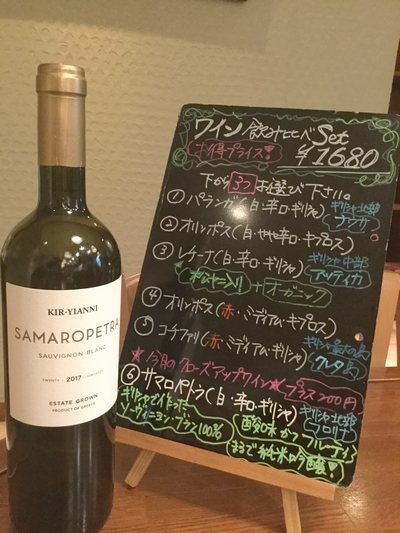 KIR-YIANNI
SAMAROPETRA
SAUVIGNON BLANC
2017
ESTATE GROWN
PRODUCT OF GREECE
ワイン飲み比べSet
お得プライス! ¥1680
下から3つお選び下さい。
① パランガ(白・辛口・ギリシャ)
ギリシャ北部
② オリンポス(白・やや辛口・キプロス)
③ レチーナ(白・辛口・ギリシャ)
ギリシャ中部
アッティカ
松ヤニ入り+オーガニック
④ オリンポス(赤・ミディアム・キプロス)
⑤ コチファリ(赤・ミディアム・ギリシャ)
クレタ島
今月のクローズアップワイン プラス200円
⑥ サマロペトラ(白・辛口・ギリシャ)
ギリシャ北部
フロリナ
ギリシャで作った
ソーヴィニヨン・ブラン100%
酸味かつフルーティ
まるで純米吟醸